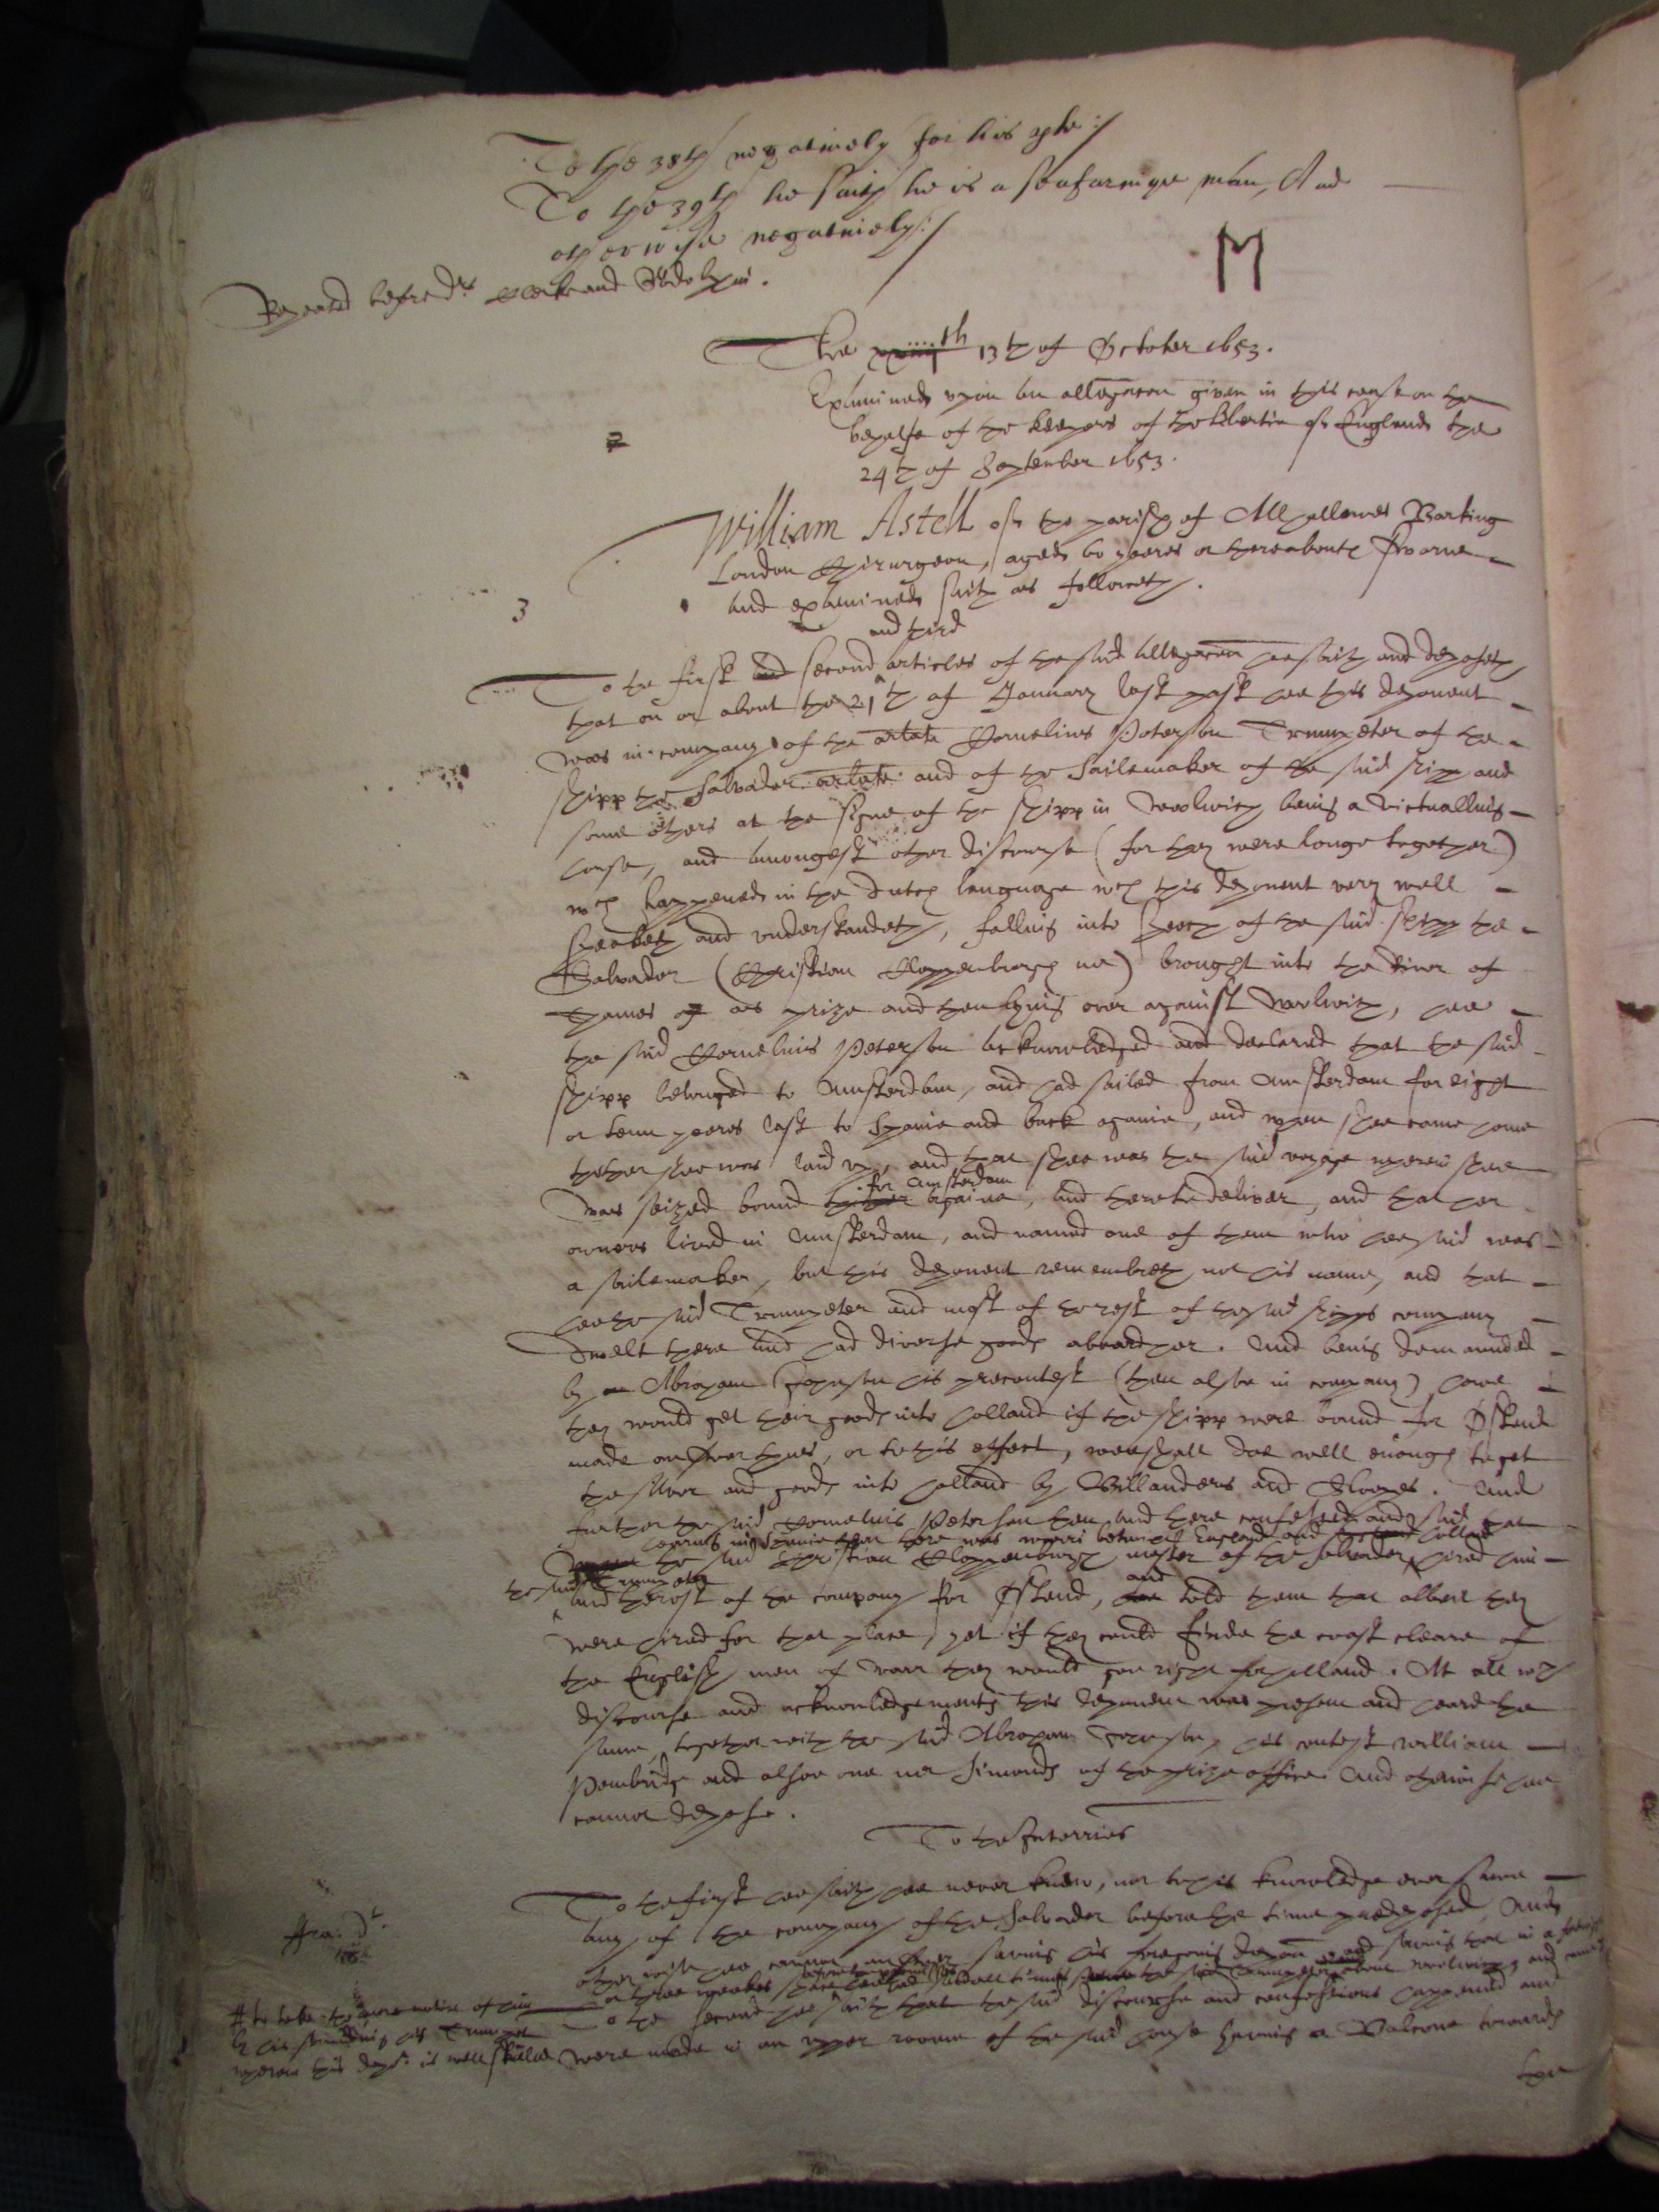 To the 38th negatively for his pte:/
To the 39th hee saith he is a seafaringe man, And
otherwise negatively:/
Repeated before dr Clerke and dr Godolphin.
M
The xxiiiith 13th of October 1653.
Examined upon an allegacon given in this cause on the
behalfe of the keepers of the libertie of England the
24th of September 1653.
2
William Astell of the parish of Allhallowes Barking
London Chirurgeon, aged 60 yeeres or thereabouts sworne
and examined saith as followeth.
3
and third
To the first and second articles of the said allegacon hee saith and deposeth
that on or about the 21th of January last past hee this deponent
was in company of the arlate Cornelius Peterson Trumpeter of the
shipp the Salvador arlate and of the Sailemaker of the said ship and
some others at the signe of the shipp in Woolwich being a victualling
house, and amongest other discourse (for they were longe together)
wch happened in the dutch language wch this deponent very well
speaketh and understandeth, falling into speech of the said shipp the
Salvador (Christian Cloppenburgh mr) brought into the River of
Thames as prize and then lying over against Woolwich, hee
the said Cornelius Peterson acknowledged and declared that the said
shipp belonged to Amsterdam, and had sailed from Amsterdam for eight
or tenn yeeres last to Spaine and back againe, and when shee came home
thether shee was laid up, and that shee was the said voyage wherein shee
for Amsterdam
was seized bound thither againe, and there to deliver, and that her
owners lived in Amsterdam, and named one of them who hee said was
a sailemaker, but this deponent remembreth not his name, and that
hee the said Trumpeter and most of the rest of the said shipps company
dwelt there and had diverse goods aboard her. And being demaunded
by Abraham Johnson his precontest (then alsoe in company) howe
they would get their goods into holland if the shipp were bound for Ostend
made answer thus, or to this effect, wee shall doe well enough to get
the silver and goods into holland by Billanders and Sloopes. And
further the said Cornelius Peterson then and there confessed and said that
hearing in Spaine that there was warr betwixt England and holland
the said Christian Cloppenburgh master of the Salvador hired him
the said Trumpeter
and the rest of the company for Ostend, and told them that albeit they
were hired for that place, yet if they could finde the coast cleare of
the English men of warr they would goe right for holland. At all wch
discourse and acknowledgements this deponent was present and heard the
same, together with the said Abraham Johnson, his contest William
Pembridge and alsoe one mr Simonds of the prize office. And otherwise hee
cannot depose.
To the Interries
To the first hee saith hee never knew, nor to his knowledge ever sawe
any of the company of the Salvador before the time predeposed, And
otherwise hee cannot answer saving his foregoing deposition and saving that in a
or three weekes space
To the second hee saith that the said discourse and confessions happened and
were made in an upper roome of the said house having a Balcone towards
# to take the more notice of him
by his sounding his Trumpet
wherein this dept is well skilled
the